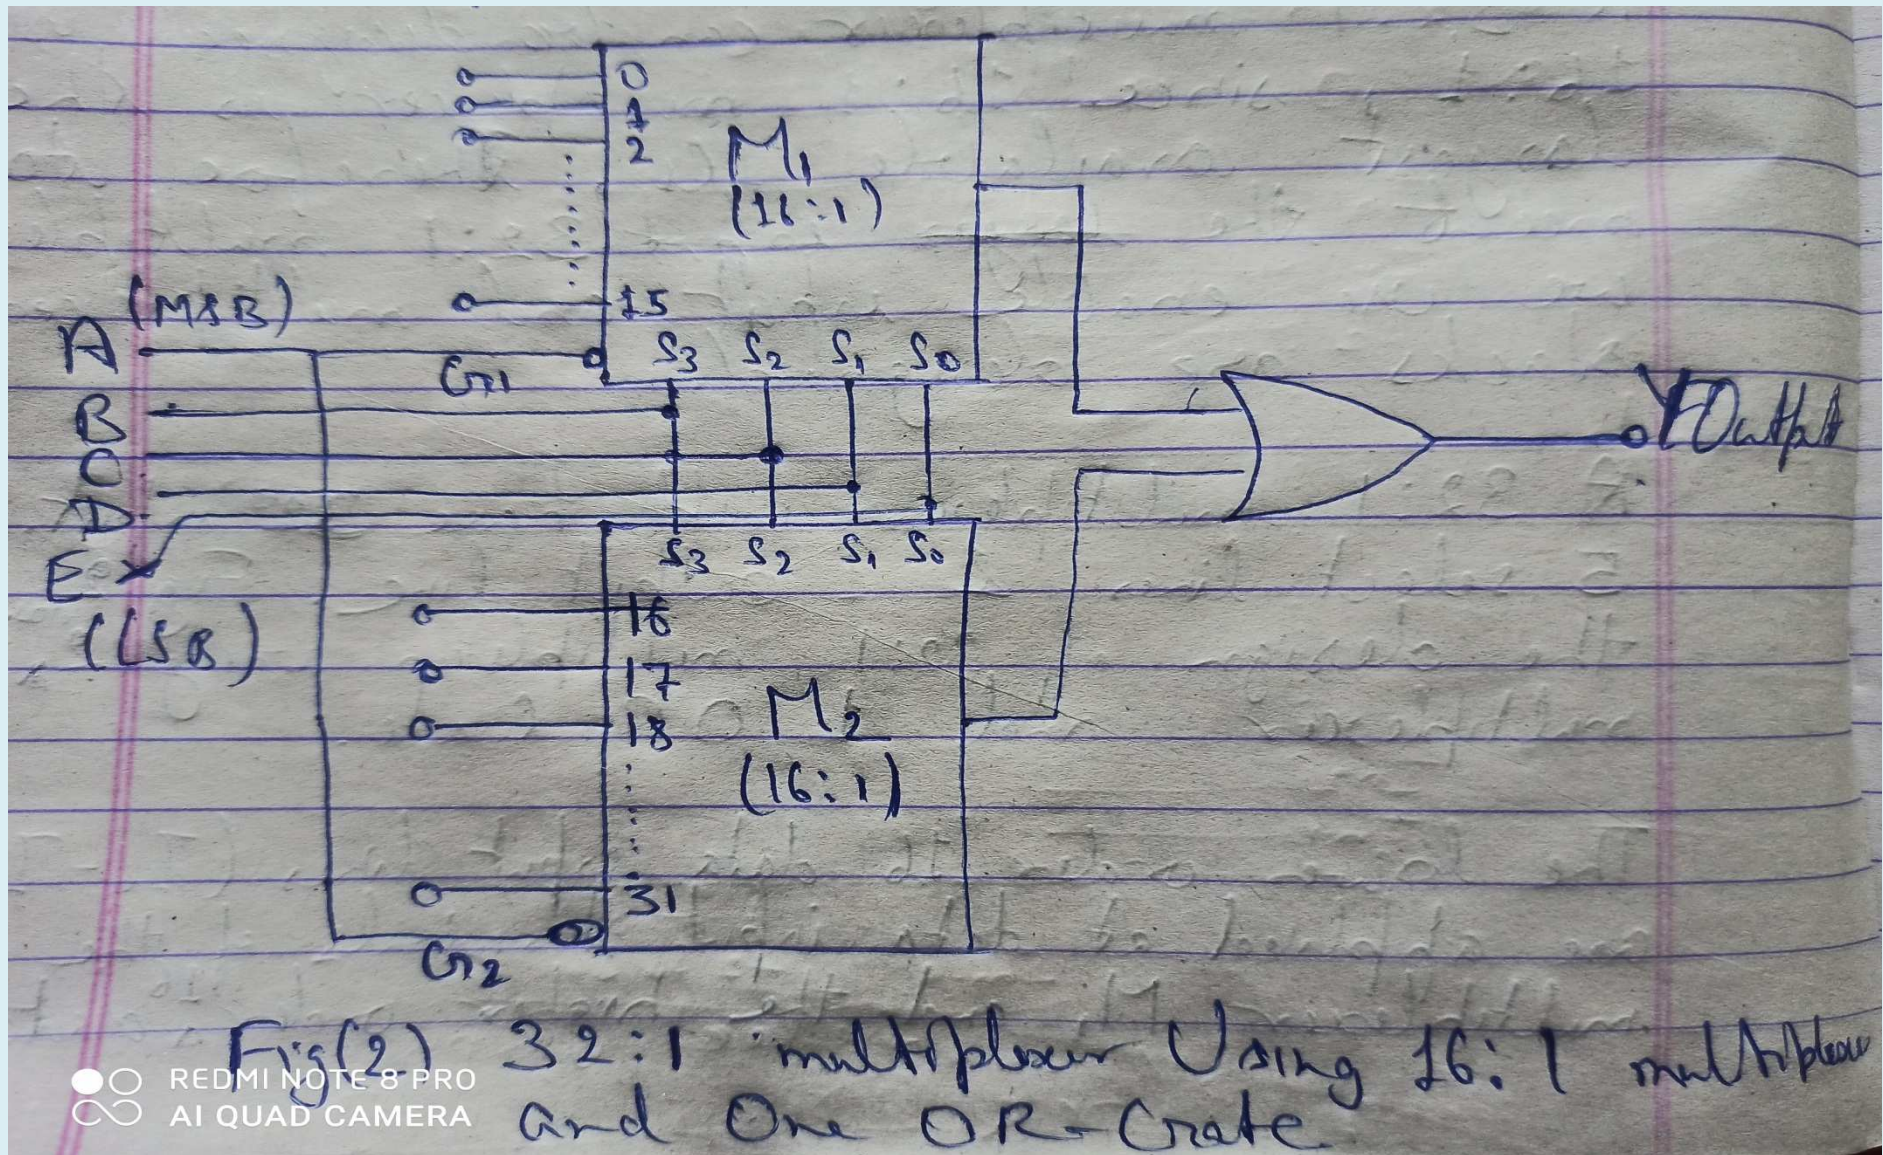 0
1
2
M1
(16:1)
15
(MSB)
A
G1
S3 S2 S1 S0
B
C
D
E
(LSB)
Y Output
S3 S2 S1 S0
16
17
18
M2
(16:1)
31
G2
Fig(2) 32:1 multiplexer Using 16:1 multiplexer
and One OR-Gate
REDMI NOTE 8 PRO
AI QUAD CAMERA